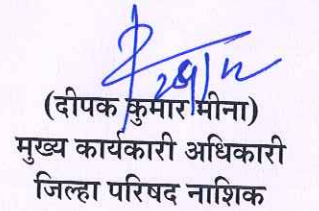 29/12
(दीपक कुमार मीना)
मुख्य कार्यकारी अधिकारी
जिल्हा परिषद नाशिक